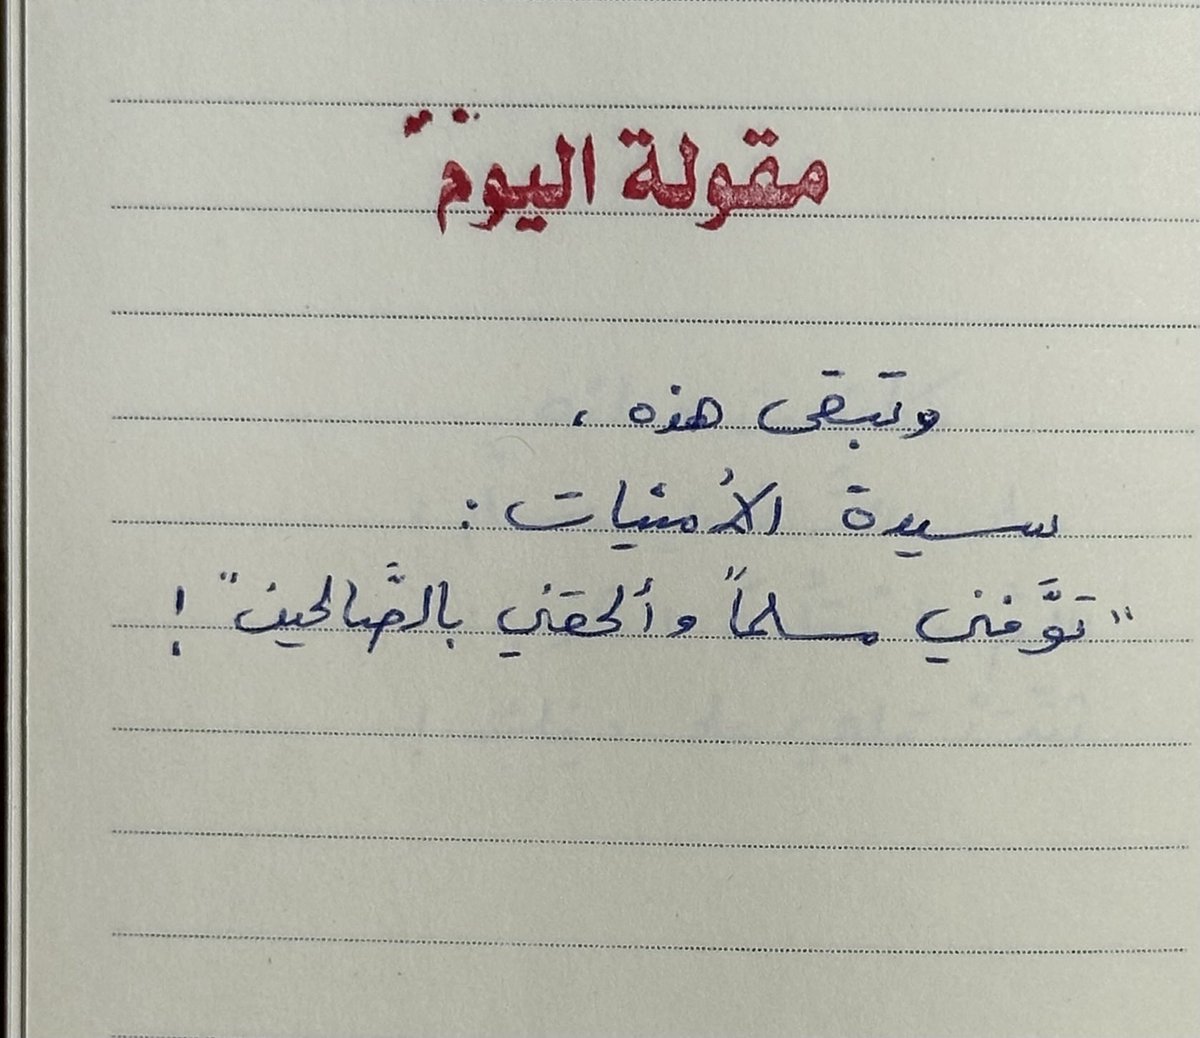 مقولة اليوم
وتبقى هذه ،
سيدة الأمنيات :
"توَّفني مسلماً وألحقني بالصَّالحين" !